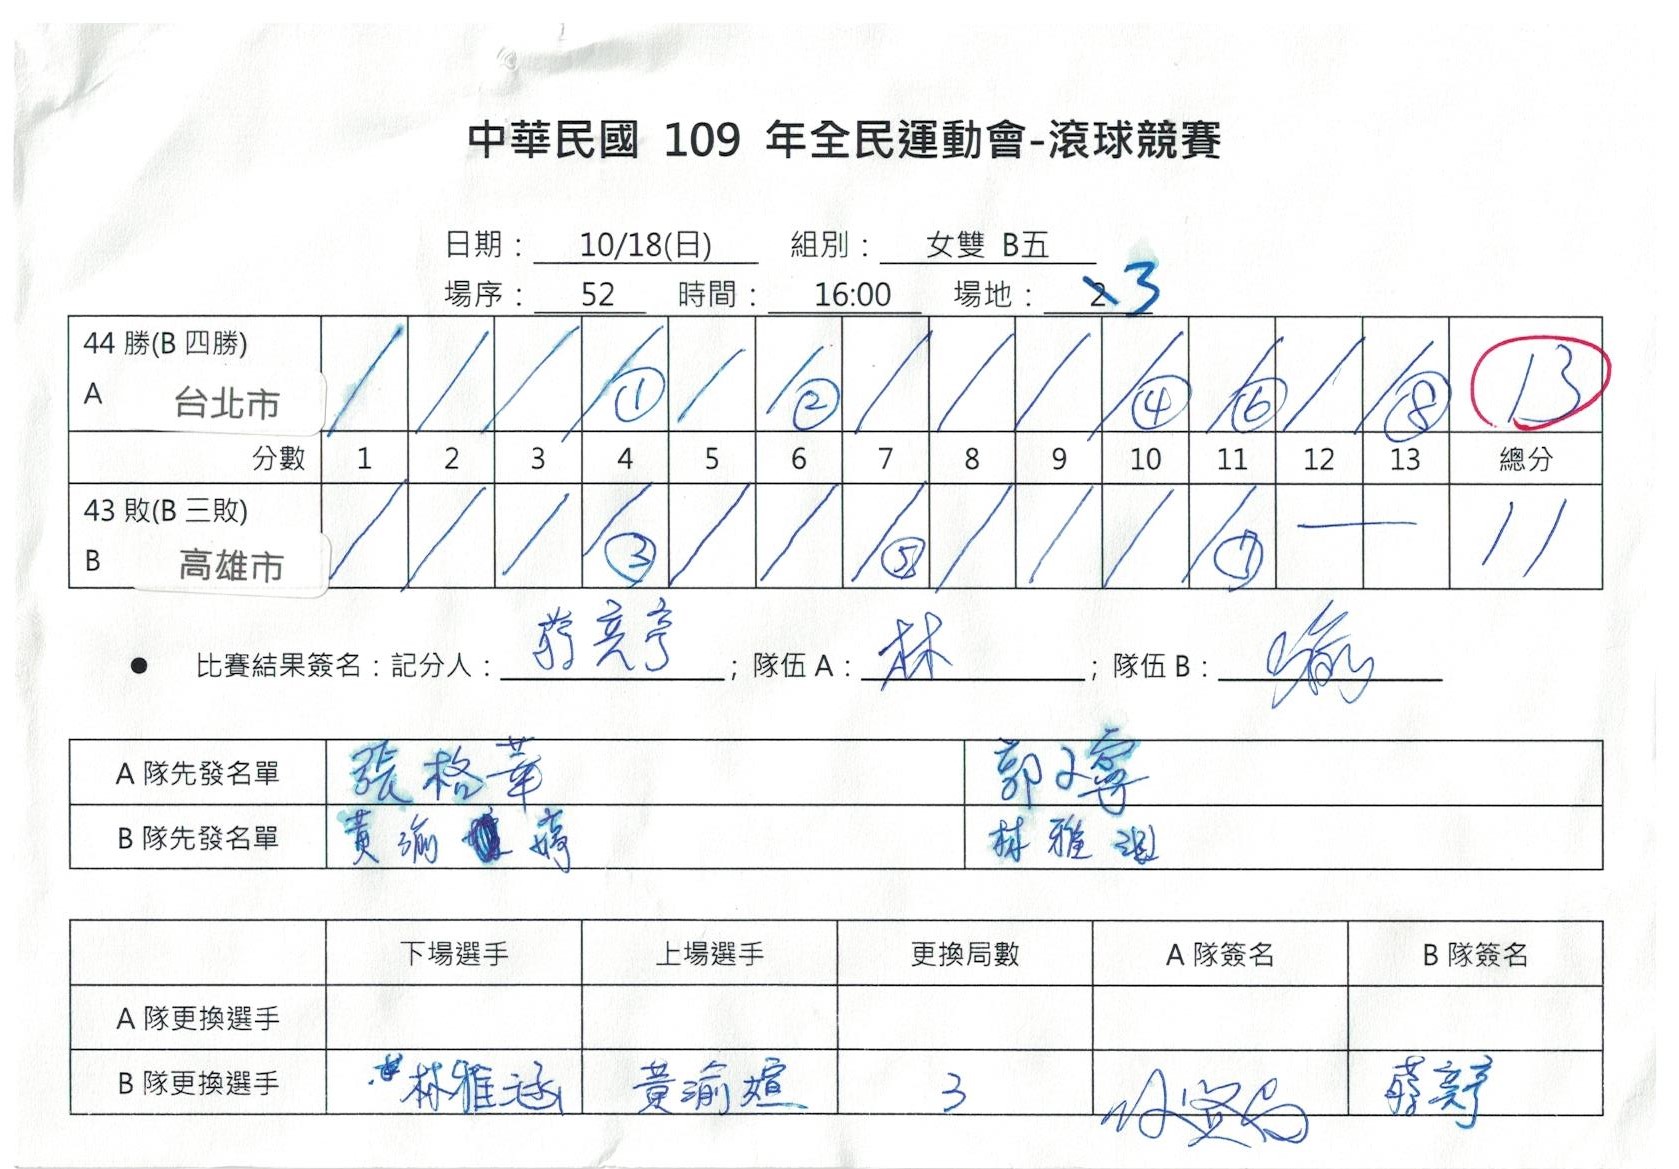 中華民國 109 年全民運動會-滾球競賽
日期： 10/18(日) 組別： 女雙 B五
場序： 52 時間： 16:00 場地： 2 3
44 勝(B 四勝)
A 台北市 / / / /① / /② / / / /④ /⑥ / /⑧ 13
分數 1 2 3 4 5 6 7 8 9 10 11 12 13 總分
43 敗(B 三敗)
B 高雄市 / / / /③ / / /⑤ / / / /⑦ — 11
● 比賽結果簽名：記分人： ；隊伍 A： 林 ；隊伍 B： 瑜
A 隊先發名單 張格華 郭 寧
B 隊先發名單 黃渝婷 林雅涵
下場選手 上場選手 更換局數 A 隊簽名 B 隊簽名
A 隊更換選手
B 隊更換選手 林雅涵 黃渝媗 3